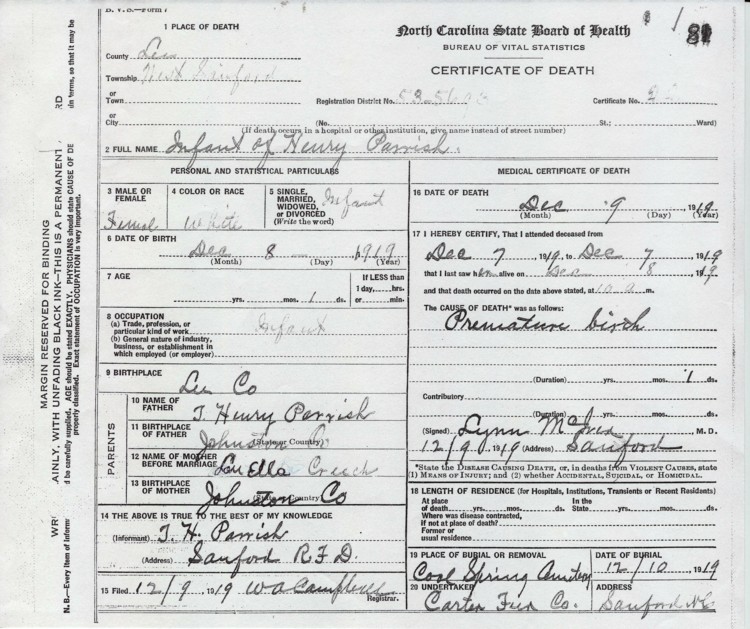 B. V. S.—Form 7
1 PLACE OF DEATH
County Lee
Township West Sanford
or
Town
or
City (No. St.; Ward)
(If death occurs in a hospital or other institution, give name instead of street number)
North Carolina State Board of Health
BUREAU OF VITAL STATISTICS
CERTIFICATE OF DEATH
Registration District No. Certificate No.
2 FULL NAME Infant of Henry Parrish.
PERSONAL AND STATISTICAL PARTICULARS
3 MALE OR FEMALE Femal
4 COLOR OR RACE White
5 SINGLE, MARRIED, WIDOWED, or DIVORCED (Write the word) Infant
6 DATE OF BIRTH Dec 8 1919
(Month) (Day) (Year)
7 AGE yrs. mos. 1 ds.
If LESS than 1 day, hrs. or min.
8 OCCUPATION
(a) Trade, profession, or particular kind of work Infant
(b) General nature of industry, business, or establishment in which employed (or employer)
9 BIRTHPLACE
Lee Co
PARENTS
10 NAME OF FATHER J. Henry Parrish
11 BIRTHPLACE OF FATHER (State or County) Johnston Co
12 NAME OF MOTHER BEFORE MARRIAGE Lou Ella Creech
13 BIRTHPLACE OF MOTHER (State or Country) Johnston Co
14 THE ABOVE IS TRUE TO THE BEST OF MY KNOWLEDGE
(Informant) J. H. Parrish
(Address) Sanford R.F.D.
15 Filed 12/9 1919 W A Campbell
Registrar.
MEDICAL CERTIFICATE OF DEATH
16 DATE OF DEATH
Dec 9 1919
(Month) (Day) (Year)
17 I HEREBY CERTIFY, That I attended deceased from
Dec 7 1919 to Dec 7 1919
that I last saw h alive on Dec 8 1919
and that death occurred on the date above stated, at 10 a m.
The CAUSE OF DEATH* was as follows:
Premature birth
(Duration) yrs. mos. 1 ds.
Contributory
(Duration) yrs. mos. ds.
(Signed) Lynn M. D.
12/9 1919 (Address) Sanford
*State the DISEASE CAUSING DEATH, or, in deaths from VIOLENT CAUSES, state
(1) MEANS OF INJURY; and (2) whether ACCIDENTAL, SUICIDAL, or HOMICIDAL.
18 LENGTH OF RESIDENCE (for Hospitals, Institutions, Transients or Recent Residents)
At place of death yrs. mos. ds. In the State yrs. mos. ds.
Where was disease contracted,
If not at place of death?
Former or
usual residence
19 PLACE OF BURIAL OR REMOVAL
Cool Spring Cemetery
DATE OF BURIAL
12/10, 1919
20 UNDERTAKER
Carter Fur Co.
ADDRESS
Sanford NC
MARGIN RESERVED FOR BINDING
AINLY, WITH UNFADING BLACK INK—THIS IS A PERMANENT
WR
RD
N. B.—Every item of inform
d be carefully supplied. AGE should be stated EXACTLY. PHYSICIANS should state CAUSE OF DE
ain terms, so that it may be
properly classified. Exact statement of OCCUPATION is very important.